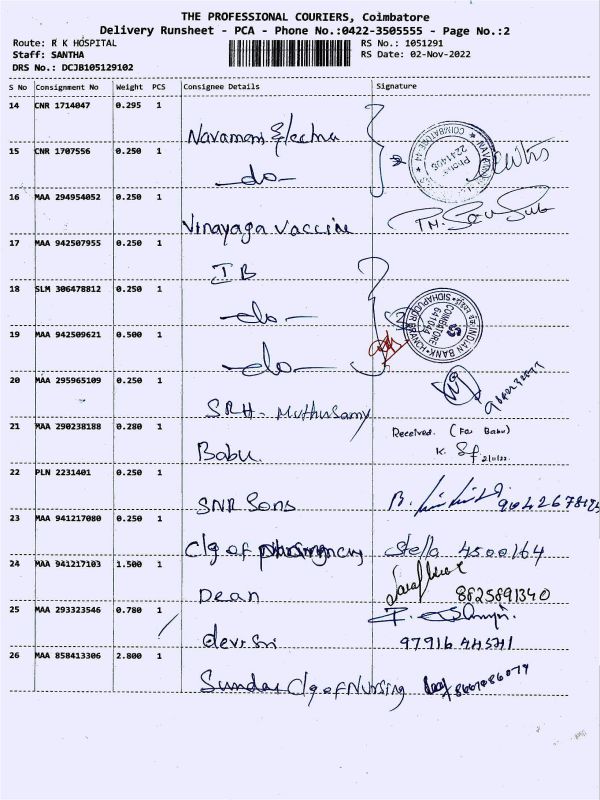 THE PROFESSIONAL COURIERS, Coimbatore
Delivery Runsheet - PCA - Phone No.:0422-3505555 - Page No.:2
Route: R K HOSPITAL
RS No.: 1051291
Staff: SANTHA
RS Date: 02-Nov-2022
DRS No.: DCJB105129102
S No Consignment No Weight PCS Consignee Details Signature
14 CNR 1714047 0.295 1
15 CNR 1707556 0.250 1 -do-
16 MAA 294954052 0.250 1 Vinayaga Vaccine
17 MAA 942507955 0.250 1 IB
18 SLM 306478812 0.250 1 -do-
19 MAA 942509621 0.500 1 -do-
20 MAA 295965109 0.250 1 SRH - Muthusamy
21 MAA 290238188 0.280 1 Babu. Received. (For Babu)
K. 2/11/22.
22 PLN 2231401 0.250 1 SNR Sons
23 MAA 941217080 0.250 1 Clg of Stella 4500164
24 MAA 941217103 1.500 1 Dean 8825891340
25 MAA 293323546 0.780 1 devi Sri
26 MAA 858413306 2.800 1 Sundar Clg of Nursing
COIMBATORE-44
PHONE
2241406
INDIAN BANK
SIDHAPUDUR BRANCH
COIMBATORE
641044